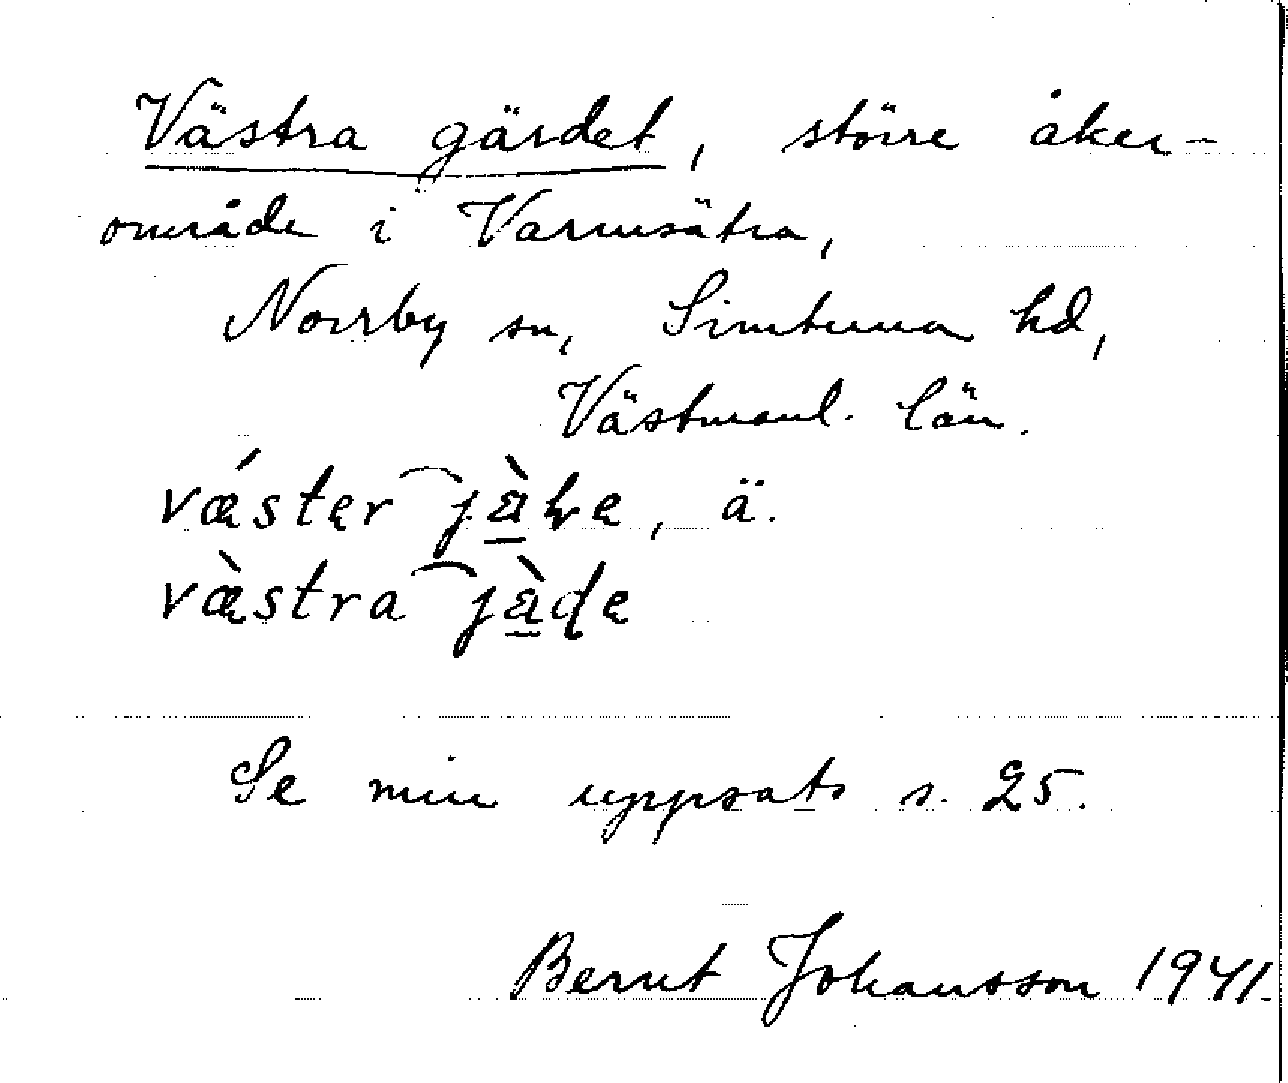 Västra gärdet, större åker-
område i Varmsätra,
Norrby sn, Simtuna hd,
Västmanl. län.
vǽster jàƚe, ä.
væ̀stra jàḍe
Se min uppsats s. 25.
Bernt Johansson 1941.